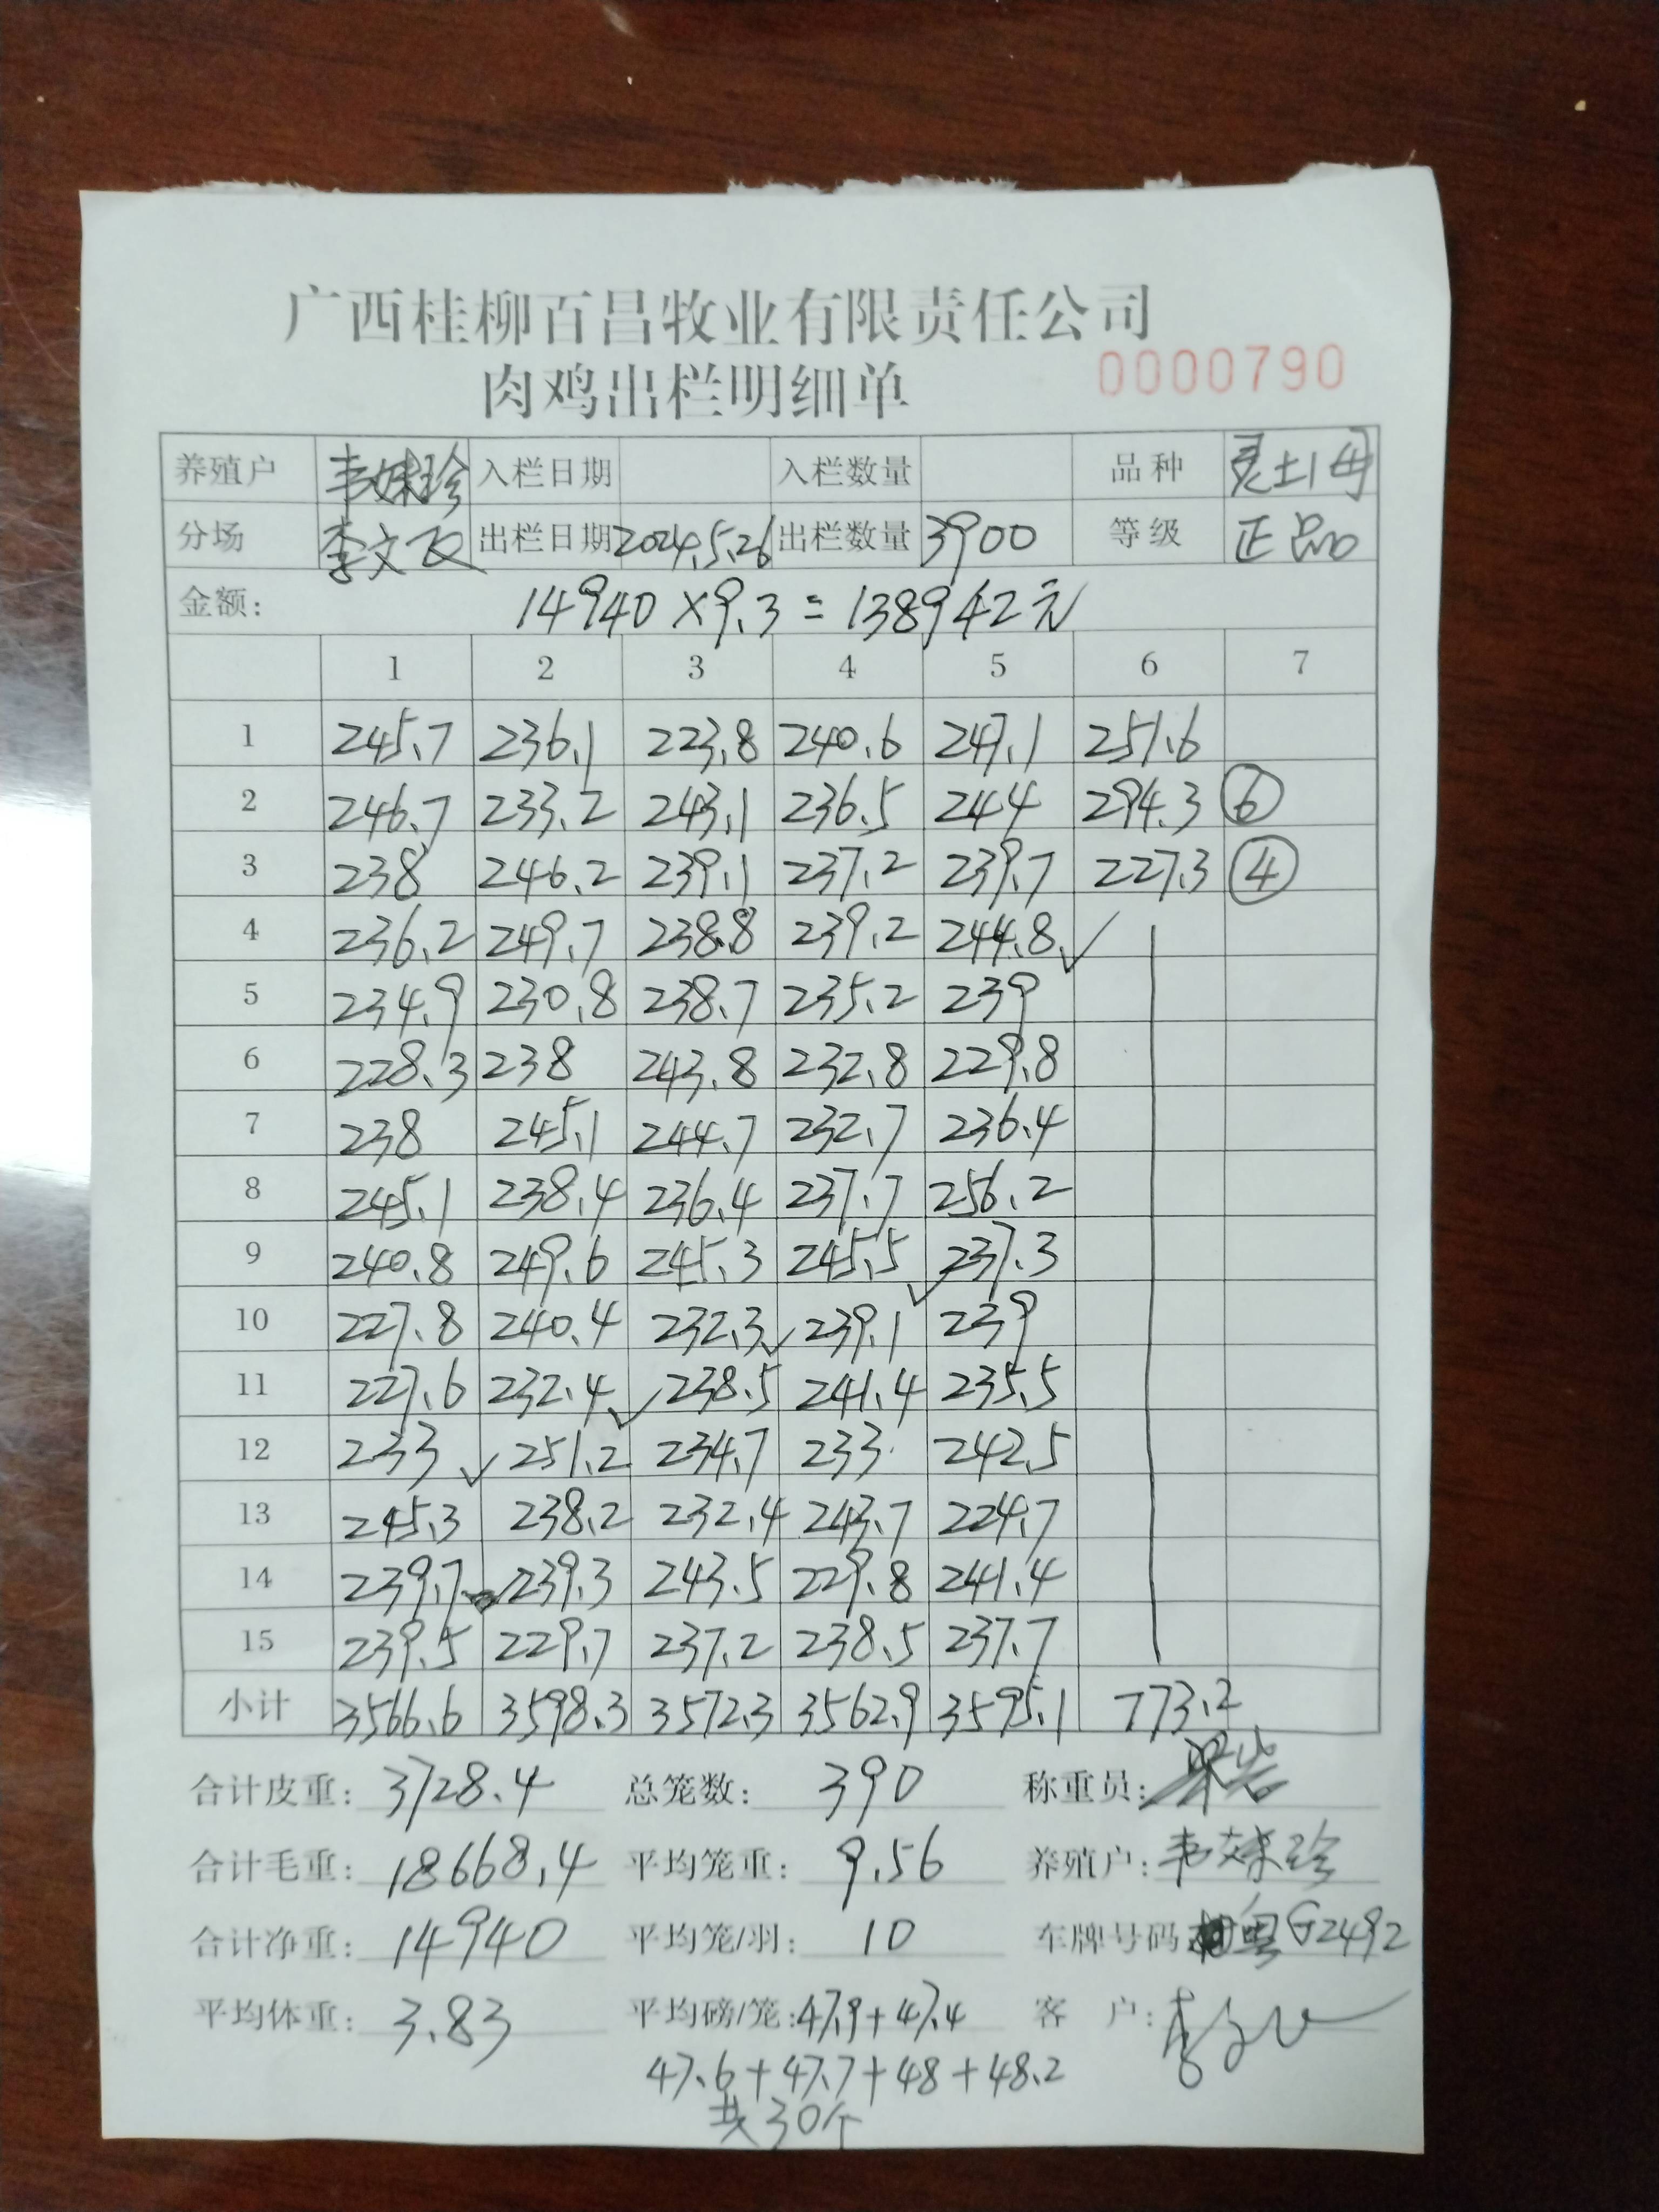 广西桂柳百昌牧业有限责任公司
肉鸡出栏明细单 0000790
养殖户 韦妹珍 入栏日期 入栏数量 品种 灵土1母
分场 李文 出栏日期 2024.5.26 出栏数量 3900 等级 正品
金额: 14940×9.3=138942元
1 2 3 4 5 6 7
1 245.7 236.1 223.8 240.6 247.1 251.6
2 246.7 233.2 243.1 236.5 244 294.3 ⑥
3 238 246.2 239.1 237.2 239.7 227.3 ④
4 236.2 249.7 238.8 239.2 244.8 ✓
5 234.9 230.8 238.7 235.2 239
6 228.3 238 243.8 232.8 229.8
7 238 245.1 244.7 232.7 236.4
8 245.1 238.4 236.4 237.7 256.2
9 240.8 249.6 245.3 245.5 ✓ 237.3
10 227.8 240.4 232.3 ✓ 239.1 239
11 227.6 232.4 ✓ 238.5 241.4 235.5
12 233 ✓ 251.2 234.7 233 242.5
13 245.3 238.2 232.4 243.7 224.7
14 239.7 239.3 243.5 229.8 241.4
15 239.5 229.7 237.2 238.5 237.7
小计 3566.6 3598.3 3572.3 3562.9 3595.1 773.2
合计皮重: 3728.4 总笼数: 390 称重员:
合计毛重: 18668.4 平均笼重: 9.56 养殖户: 韦妹珍
合计净重: 14940 平均笼/羽: 10 车牌号码 粤G2492
平均体重: 3.83 平均磅/笼: 47.9+47.4 客 户:
47.6+47.7+48+48.2
共30个